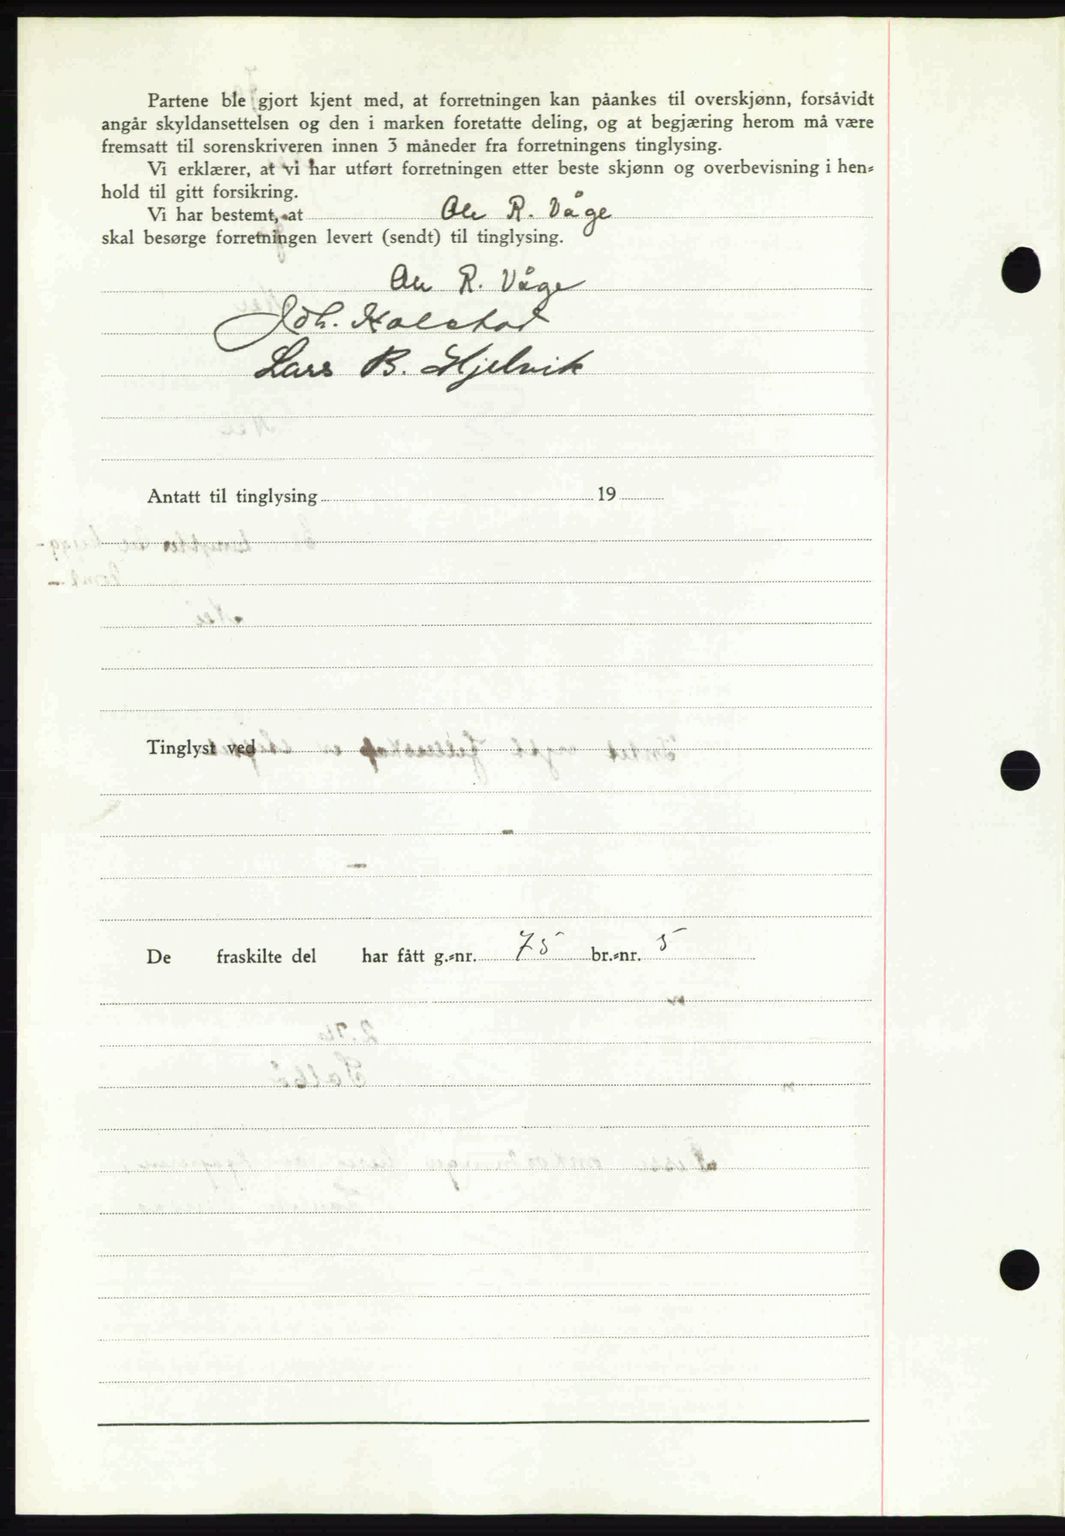 Partene ble gjort kjent med, at forretningen kan påankes til overskjønn, forsåvidt
angår skyldansettelsen og den i marken foretatte deling, og at begjæring herom må være
fremsatt til sorenskriveren innen 3 måneder fra forretningens tinglysing.
Vi erklærer, at vi har utført forretningen etter beste skjønn og overbevisning i hen-
hold til gitt forsikring.
Vi har bestemt, at Ole R. Våge
skal besørge forretningen levert (sendt) til tinglysing.
Ole R. Våge
Joh. Kolstad
Lars B. Hjelvik
Antatt til tinglysing 19
Tinglyst ved
De fraskilte del har fått g.-nr. 75 br.-nr. 5